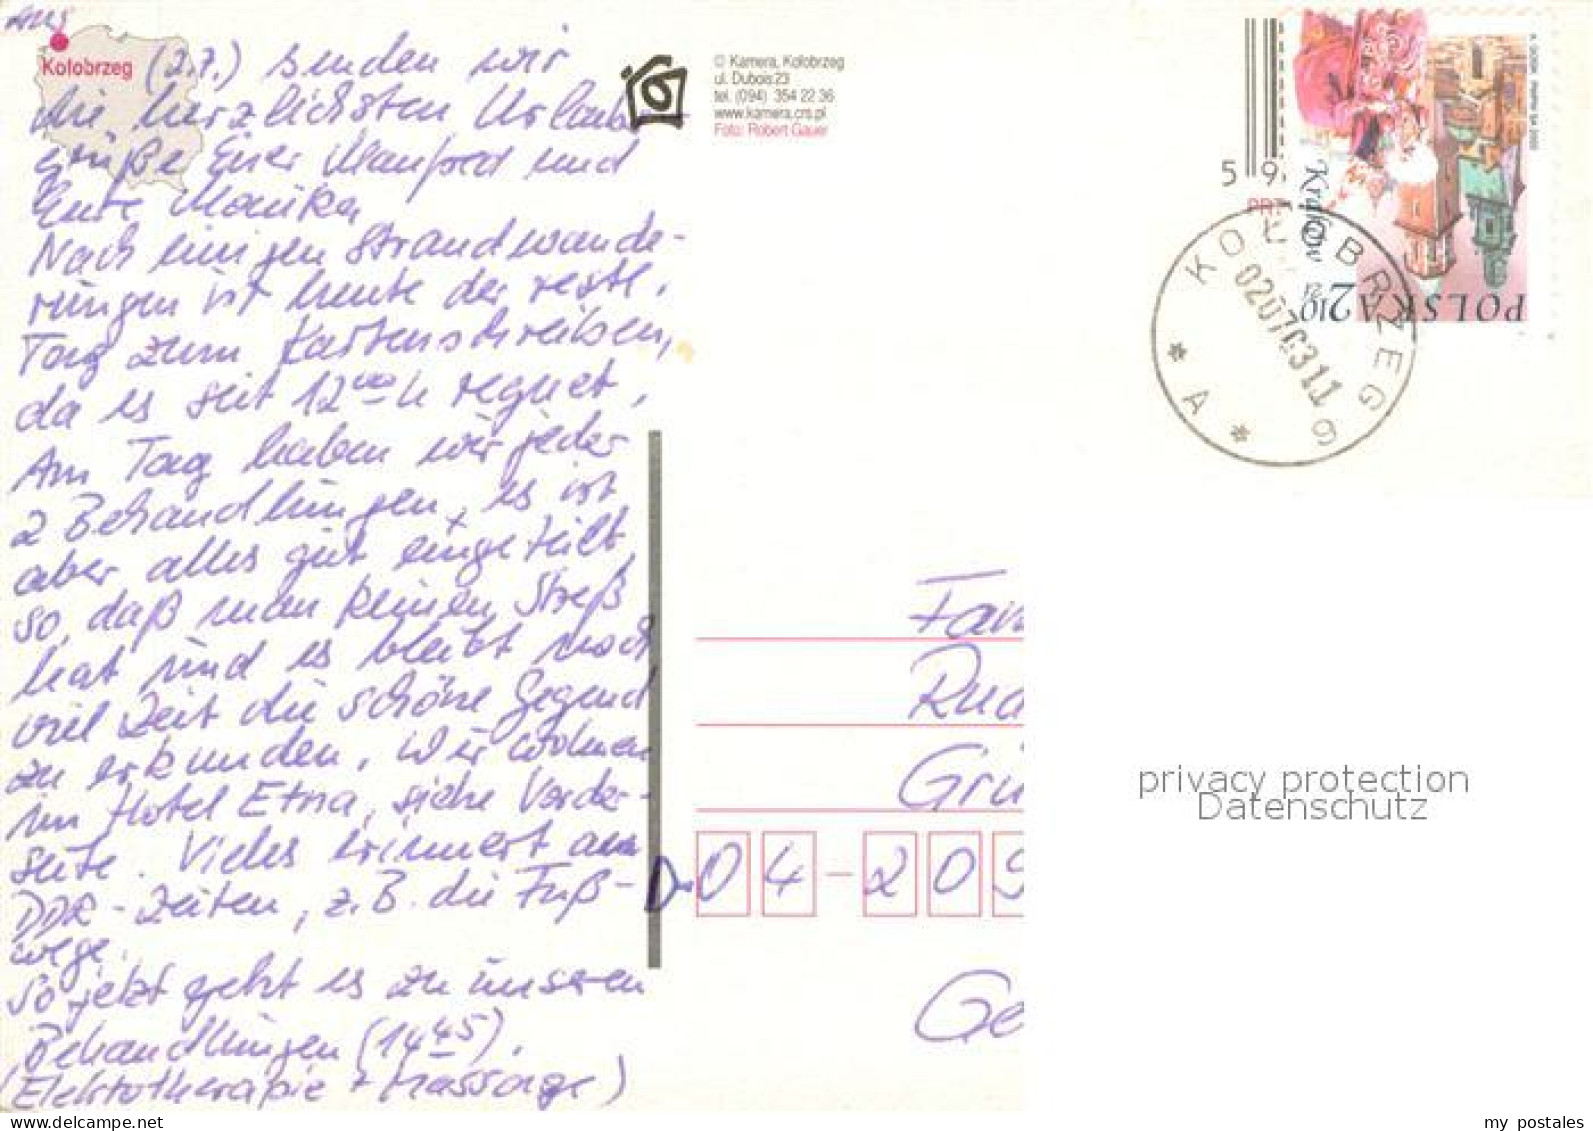 Aus
Kołobrzeg (2.7.) senden wir
die herzlichsten Urlaubs-
grüße Euer Manfred und
Eure Monika
Nach einigen Strandwande-
rungen ist heute der reste.
Tag zum Kartenschreiben,
da es seit 12⁰⁰h regnet,
Am Tag haben wir jeder
2 Behandlungen, es ist
aber alles gut eingeteilt
so, daß man keinen Streß
hat und es bleibt noch
viel Zeit die schöne Gegend
zu erkunden. Wir wohnen
im Hotel Etna, siehe Vorder-
seite. Vieles erinnert an
DDR-Zeiten, z.B. die Fuß-
wege.
So jetzt geht es zu unseren
Behandlungen (14⁴⁵).
(Elektotherapie + Massage)
© Kamera, Kołobrzeg
ul. Dubois 23
tel. (094) 354 22 36
www.kamera.crs.pl
Foto: Robert Gauer
59
PRT
Kraków
POLSKA 210 zł
KOŁOBRZEG 6
020703 11
* A *
Fam
Rud
Grü
D-04-209
Ge
privacy protection
Datenschutz
my postales
www.delcampe.net